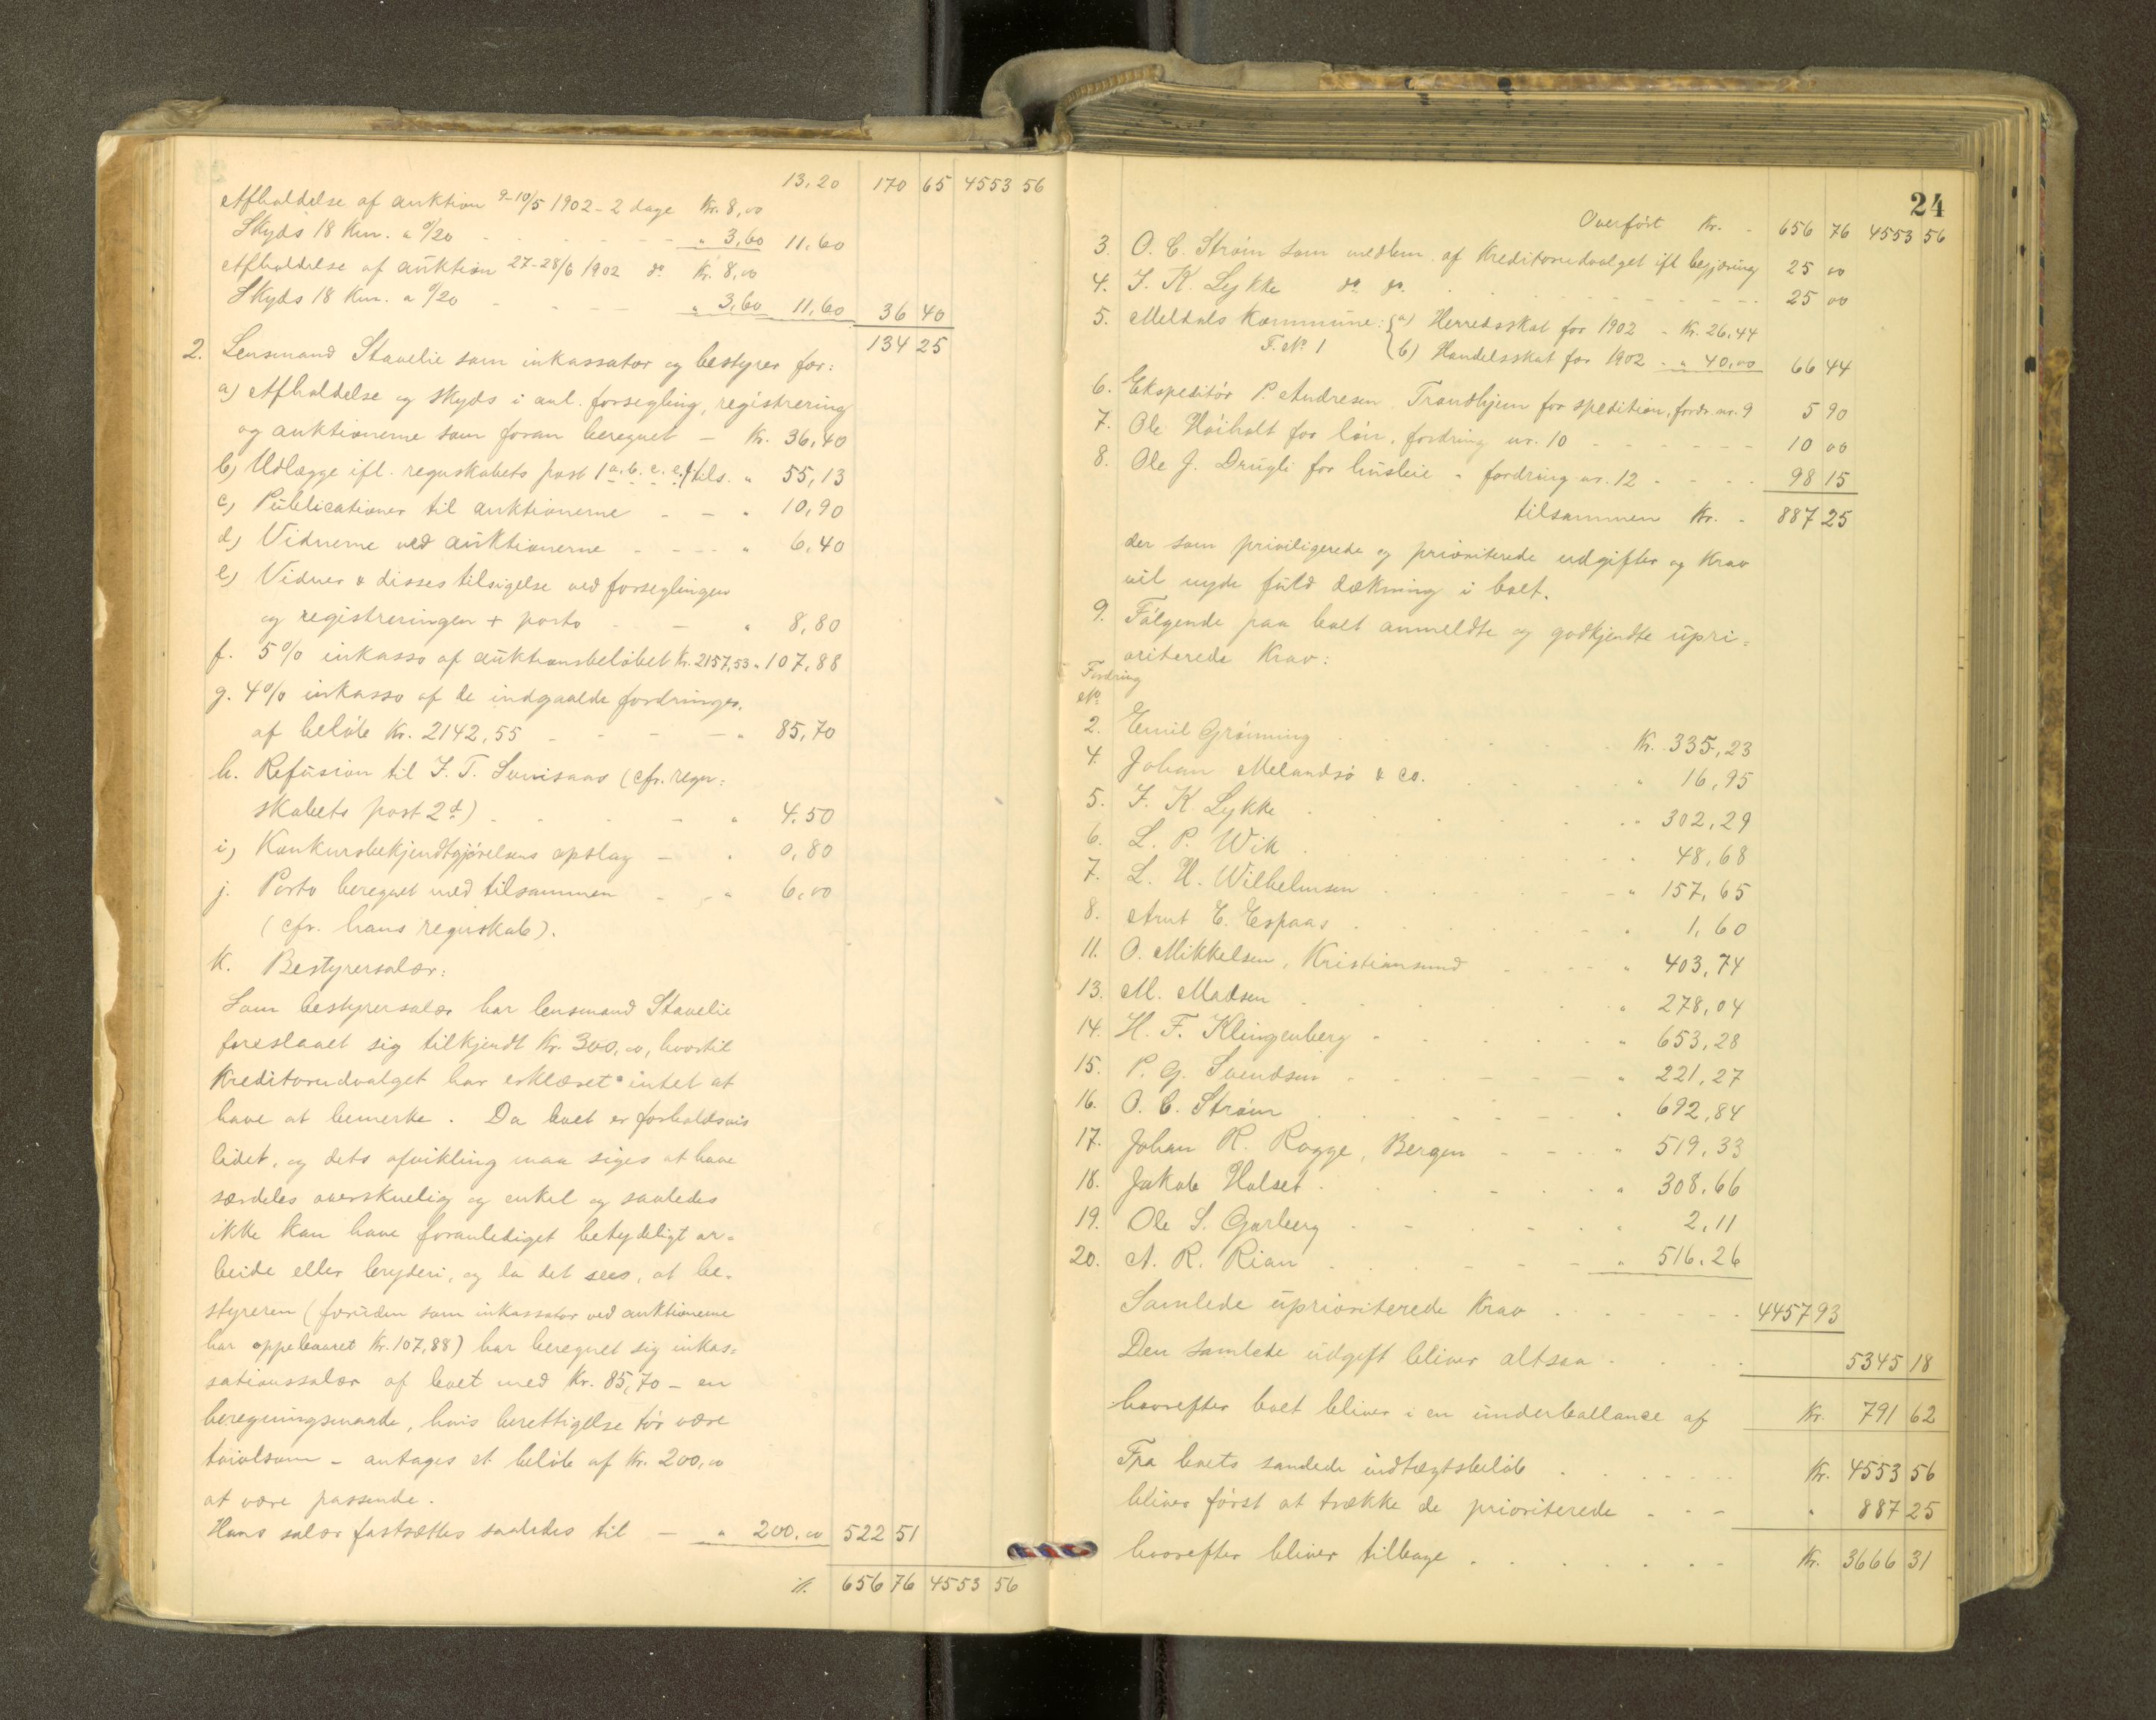 13,20 170 65 4553 56
Afholdelse af auktion 9-10/5 1902 - 2 dage Kr. 8,00
Skyds 18 Km. a 0/20 - - - - - " 3,60 11,60
Afholdelse af auktion 27-28/6 1902 do Kr. 8,00
Skyds 18 Km. a 0/20 - - - - " 3,60 11,60 36 40
134 25
2. Lensmand Stavelie som inkassator og bestyrer for:
a) Afholdelse og skyds i anl. forsegling, registrering
og auktionerne som foran beregnet - Kr. 36,40
b) Udlægge ifl. regnskabets post 1 a. b. c. e. f/ tils. " 55,13
c) Publicationer til auktionerne - - " 10,90
d) Vidnerne ved auktionerne - - - - " 6,40
e) Vidner & disses tilsigelse ved forseglingen
og registreringen + porto - - " 8,80
f. 5% inkasso af auktionsbeløbet Kr. 2157,53 " 107,88
g. 4% inkasso af de indgaaede fordringer,
af beløb Kr. 2142,55 - - - - " 85,70
h. Refusion til J. T. (cfr. regn=
skabets post 2d) - - - - " 4.50
i) Konkursbekjendtgjørelsens opslag - " 0,80
j. Porto beregnet med tilsammen - - " 6,00
(cfr. hans regnskab).
K. Bestyrersalær:
Som bestyrersalær har lensmand Stavelie
foreslaaet sig tilkjendt Kr. 300,00, hvortil
Kreditorudvalget har erklæret intet at
have at bemerke. Da boet er forholdsvis
lidet, og dets afvikling maa siges at have
særdeles overskuelig og enkel og saaledes
ikke kan have foranlediget betydeligt ar=
beide eller bryderi, og da det sees, at be-
styreren (foruden som inkassator ved auktionerne
har oppebaaret Kr. 107,88) har beregnet sig inkas=
sationssalær af boet med Kr. 85,70 - en
beregningsmaade, hvis berettigelse tør være
tvivlsom - antages et beløb af Kr. 200,00
at være passende.
Hans salær fastsættes saaledes til - " 200,00 522 51
./. 656 76 4553 56
24
Overført Kr. - 656 76 4553 56
3. O. C. Strøm som medlem af Kreditorudvalget ifl begjæring 25 00
4. J. K. Lykke do do. - - - - 25 00
5. Meldals Kommune: {a) Herredsskat for 1902 - Kr. 26,44
F. No 1 {b) Handelsskat for 1902 - " 40,00 66 44
6. Ekspeditør P. Andresen Trondhjem for spedition, fordr. nr. 9 5 90
7. Ole Høiholt for løn, fordring nr. 10 - - - - 10 00
8. Ole J. Drugli for husleie - fordring nr. 12 - - - - 98 15
tilsammen Kr. - 887 25
der som priviligerede og prioriterede udgifter og Krav
vil nyde fuld dækning i boet.
9. Følgende paa boet anmeldte og godkjendte upri=
oriterede Krav:
Fordring
No
2. Emil Grønning . . . . Kr. 335,23
4. Johan Melandsø & Co. . . . " 16,95
5. J. K. Lykke . . . . " 302,29
6. L. P. Wik . . . . " 48,68
7. L. H. Wilhelmsen . . . . " 157,65
8. Arnt E. Espaas . . . . " 1,60
11. O. Mikkelsen, Kristiansund - - - " 403,74
13. M. Madsen . . . . " 278,04
14. H. F. Klingenberg - . . . " 653,28
15. P. G. Svendsen . . . . " 221,27
16. O. C. Strøm . . . . " 692,84
17. Johan R. Rogge, Bergen - - - " 519,33
18. Jakob Holset . . . . " 308,66
19. Ole S. Garberg . . . . " 2,11
20. A. R. Rian . . . . " 516,26
Samlede uprioriterede Krav . . . . 4457 93
Den samlede udgift bliver altsaa . . . . 5345 18
hvorefter boet bliver i en underballance af Kr. 791 62
Fra boets samlede indtægtsbeløb . . . . Kr. 4553 56
bliver først at trække de prioriterede - - - " 887 25
hvorefter bliver tilbage . . . . Kr. 3666 31